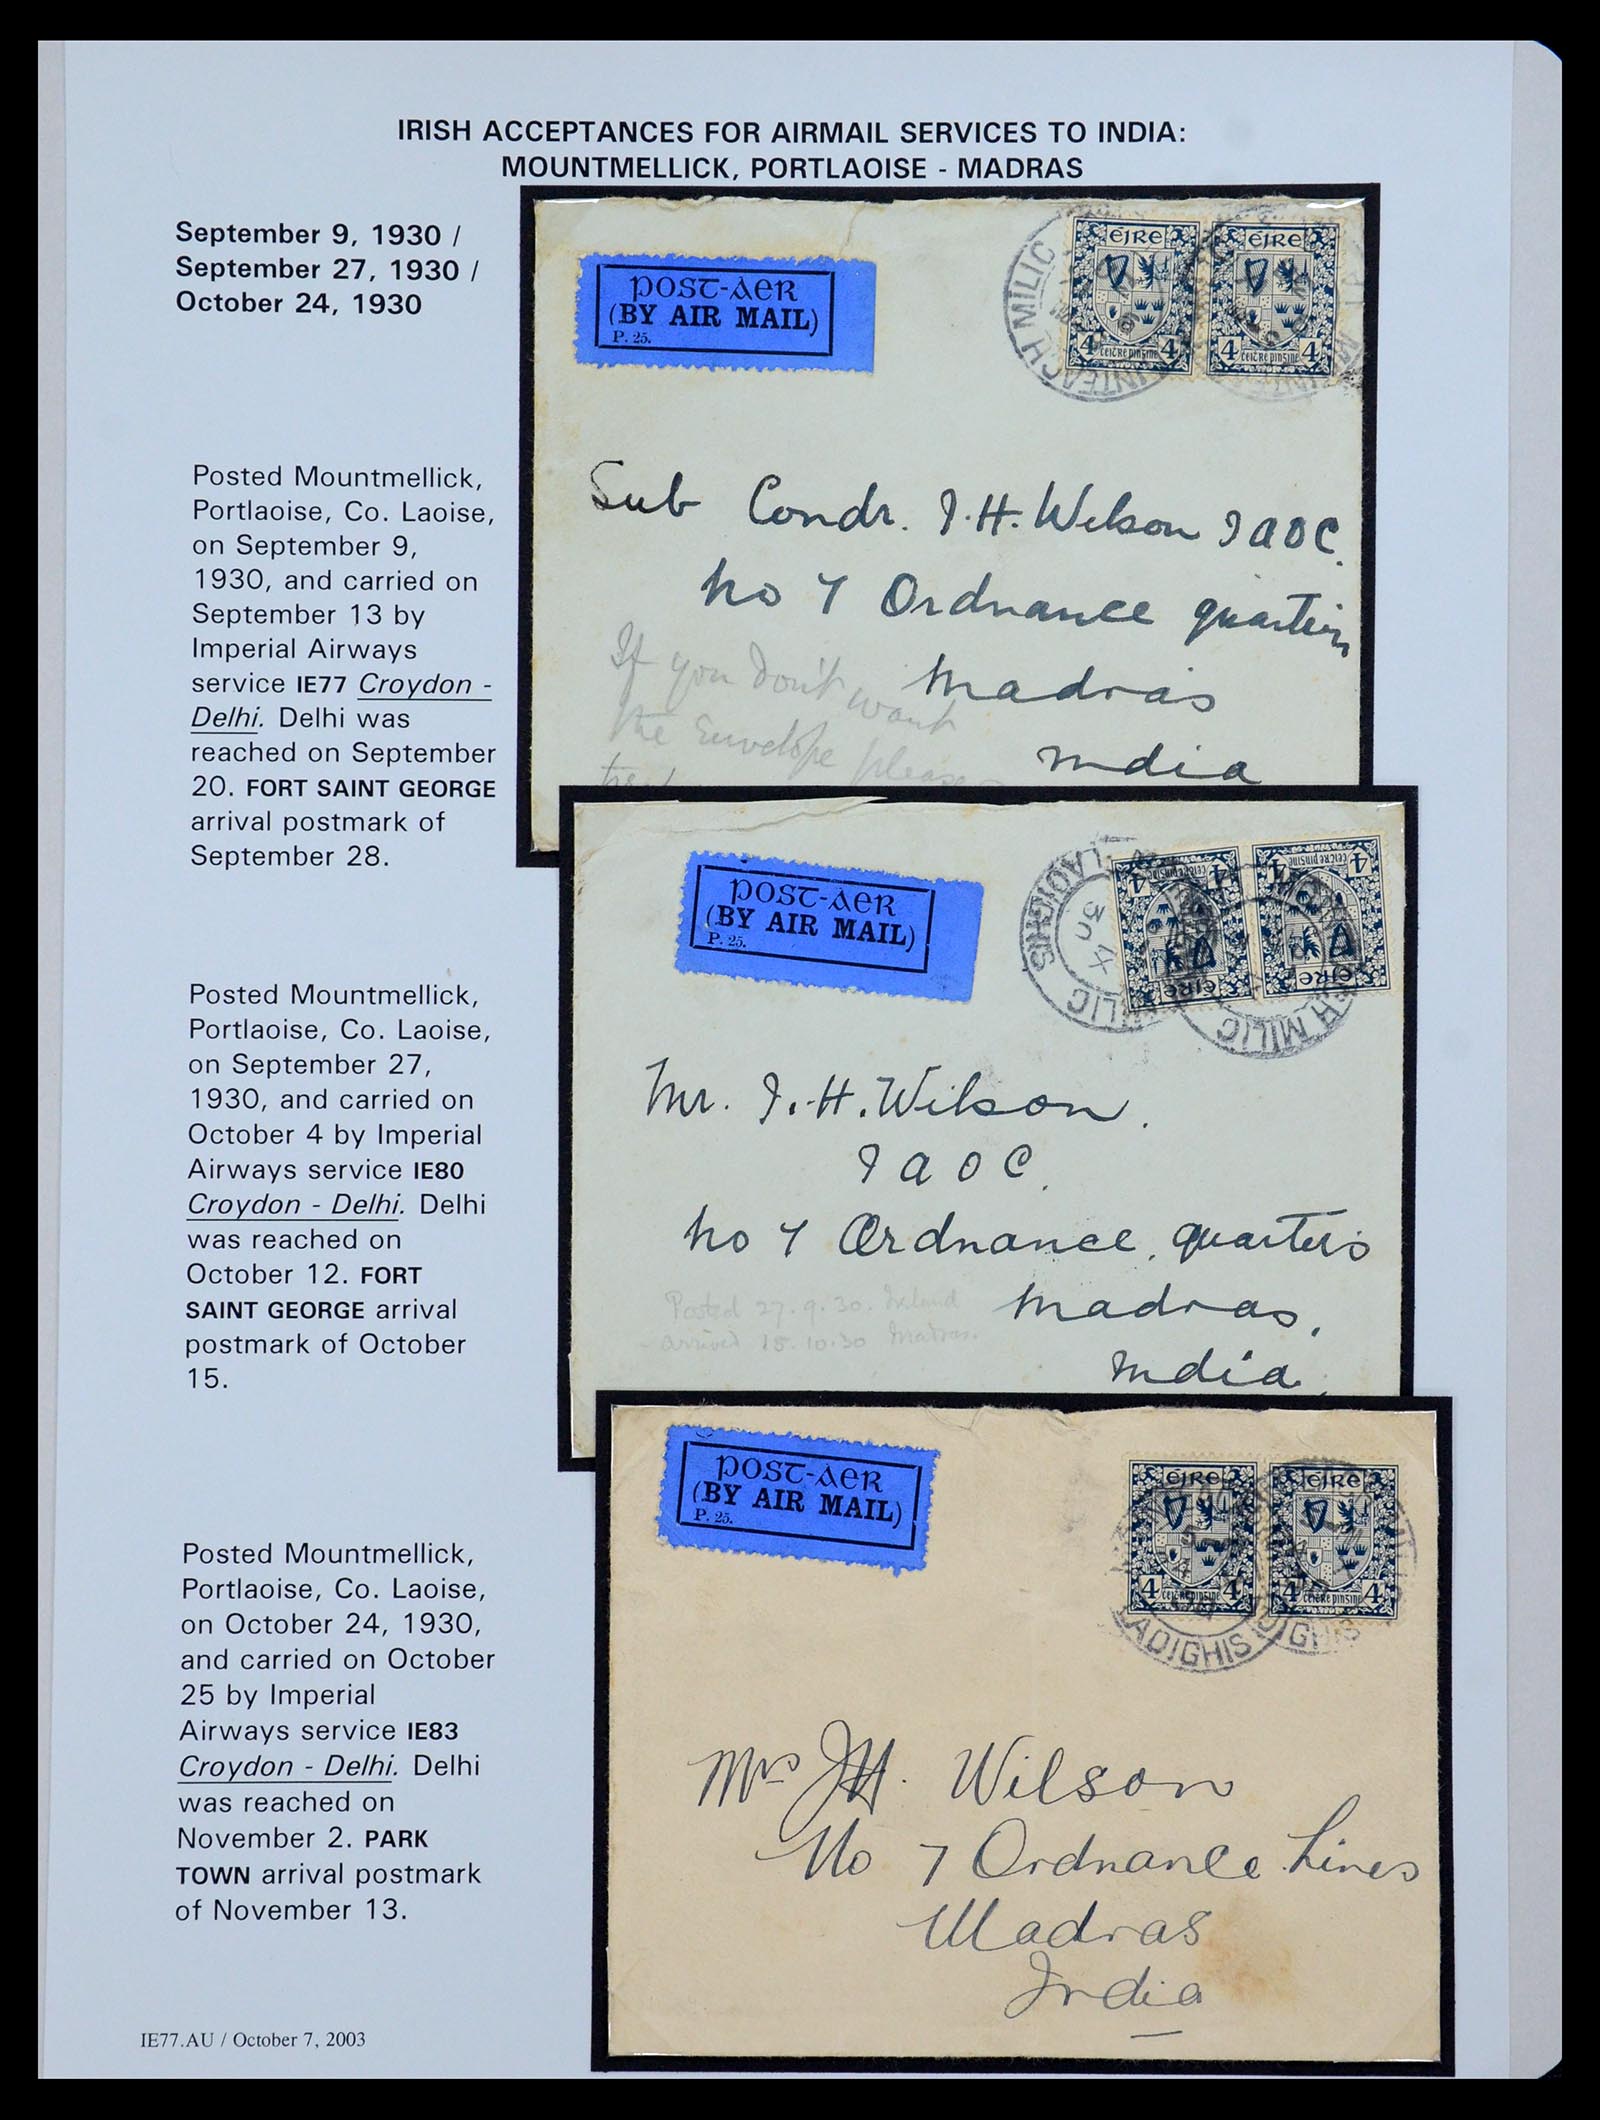 IRISH ACCEPTANCES FOR AIRMAIL SERVICES TO INDIA:
MOUNTMELLICK, PORTLAOISE - MADRAS
September 9, 1930 /
September 27, 1930 /
October 24, 1930
Posted Mountmellick,
Portlaoise, Co. Laoise,
on September 9,
1930, and carried on
September 13 by
Imperial Airways
service IE77 Croydon -
Delhi. Delhi was
reached on September
20. FORT SAINT GEORGE
arrival postmark of
September 28.
POST-AER
(BY AIR MAIL)
P. 25.
MILIC
EIRE
EIRE
4 CEITRE PINSINE 4
4 CEITRE PINSINE 4
Sub Condr. J.H. Wilson IAOC.
No 7 Ordnance quarters
Madras
India
If you Don't want
the Envelope please
Posted Mountmellick,
Portlaoise, Co. Laoise,
on September 27,
1930, and carried on
October 4 by Imperial
Airways service IE80
Croydon - Delhi. Delhi
was reached on
October 12. FORT
SAINT GEORGE arrival
postmark of October
15.
POST-AER
(BY AIR MAIL)
P. 25.
LAOIGHIS
IX
30
MILIC
4 CEITRE PINSINE 4
4 CEITRE PINSINE 4
EIRE
EIRE
Mr. J.H. Wilson.
IAOC.
No 7 Ordnance quarters
Madras,
India.
Posted 27.9.30. Ireland
- arrived 15.10.30 Madras.
Posted Mountmellick,
Portlaoise, Co. Laoise,
on October 24, 1930,
and carried on October
25 by Imperial
Airways service IE83
Croydon - Delhi. Delhi
was reached on
November 2. PARK
TOWN arrival postmark
of November 13.
POST-AER
(BY AIR MAIL)
P. 25.
EIRE
EIRE
4 CEITRE PINSINE 4
4 CEITRE PINSINE 4
LAOIGHIS
Mrs J.H. Wilson
No 7 Ordnance Lines
Madras
India
IE77.AU / October 7, 2003